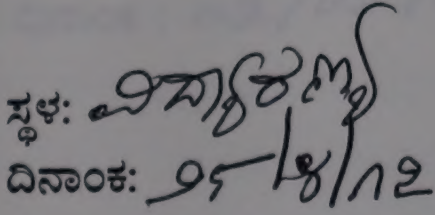 ಸ್ಥಳ: ವಿದ್ಯಾರಣ್ಯ
ದಿನಾಂಕ: ೨೯/೪/೧೨